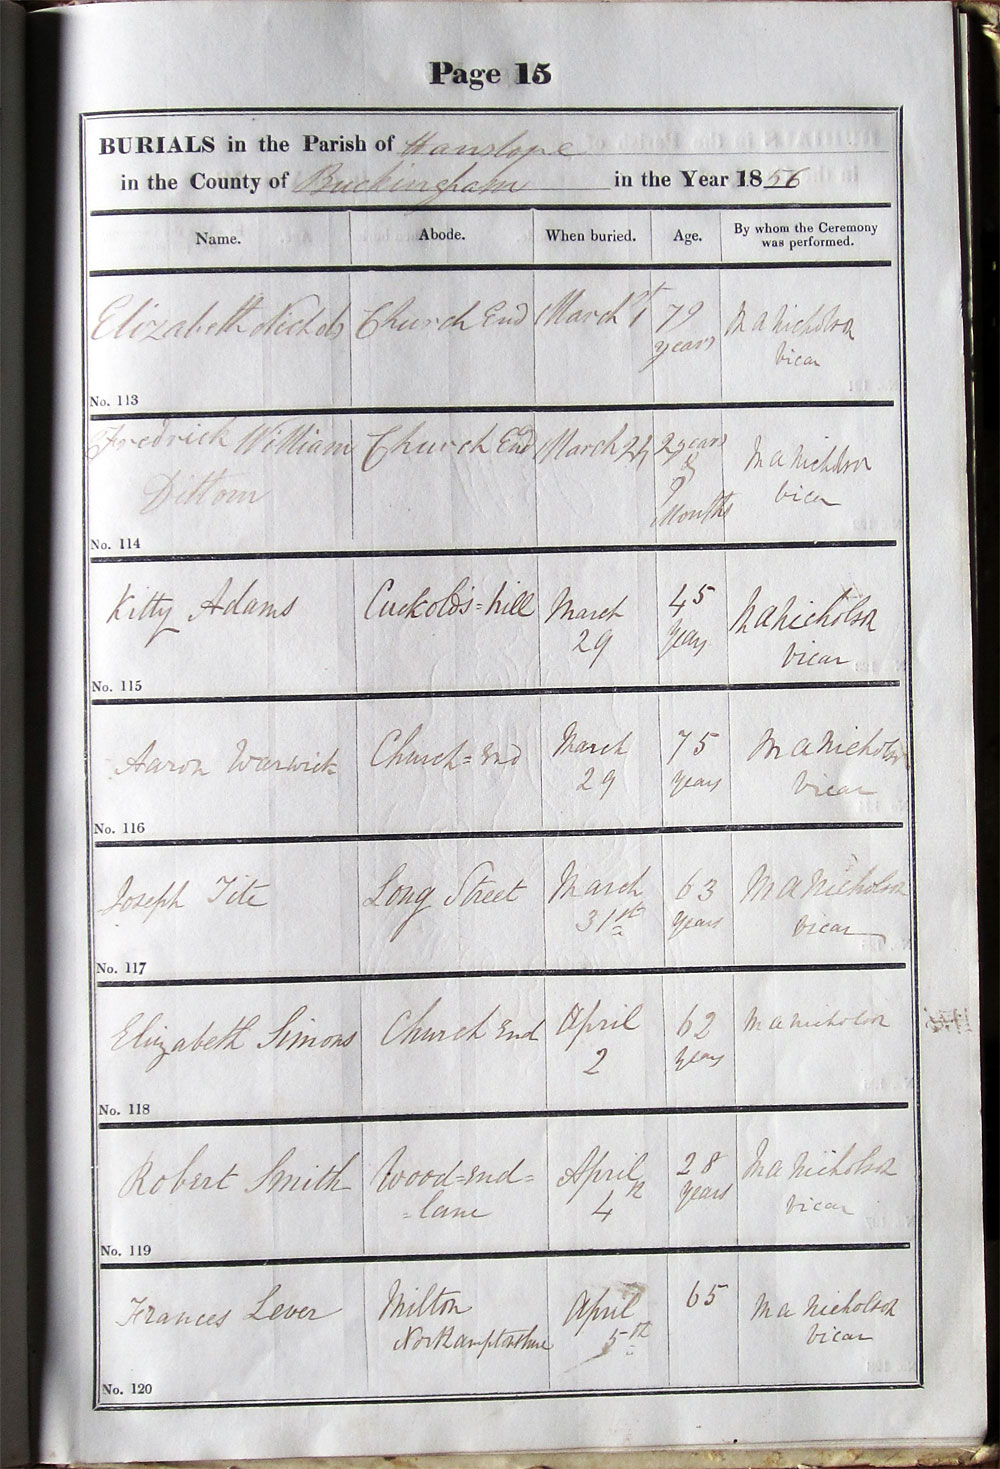 Page 15
BURIALS in the Parish of Hanslope
in the County of Buckingham in the Year 1856
Name. Abode. When buried. Age. By whom the Ceremony was performed.
Elizabeth Nichols Church End March 1st 79 M A Nicholson
years Vicar
No. 113
Fredrick William Church End March 24 2 years M A Nicholson
Dittom & Vicar
9
Months
No. 114
Kitty Adams Cuckold's=hill March 45 M A Nicholson
29 years Vicar
No. 115
Aaron Warwick Church=End March 75 M A Nicholson
29 years Vicar
No. 116
Joseph Tite Long Street March 63 M A Nicholson
31st years Vicar
No. 117
Elizabeth Simons Church End April 62 M A Nicholson
2 years
No. 118
Robert Smith Wood=End= April 28 M A Nicholson
=lane 4th years Vicar
No. 119
Frances Lever Milton April 65 M A Nicholson
Northamptonshire 5th Vicar
No. 120